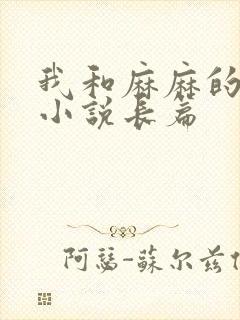 我和麻麻的
小說长篇
阿瑟-蘇尔兹